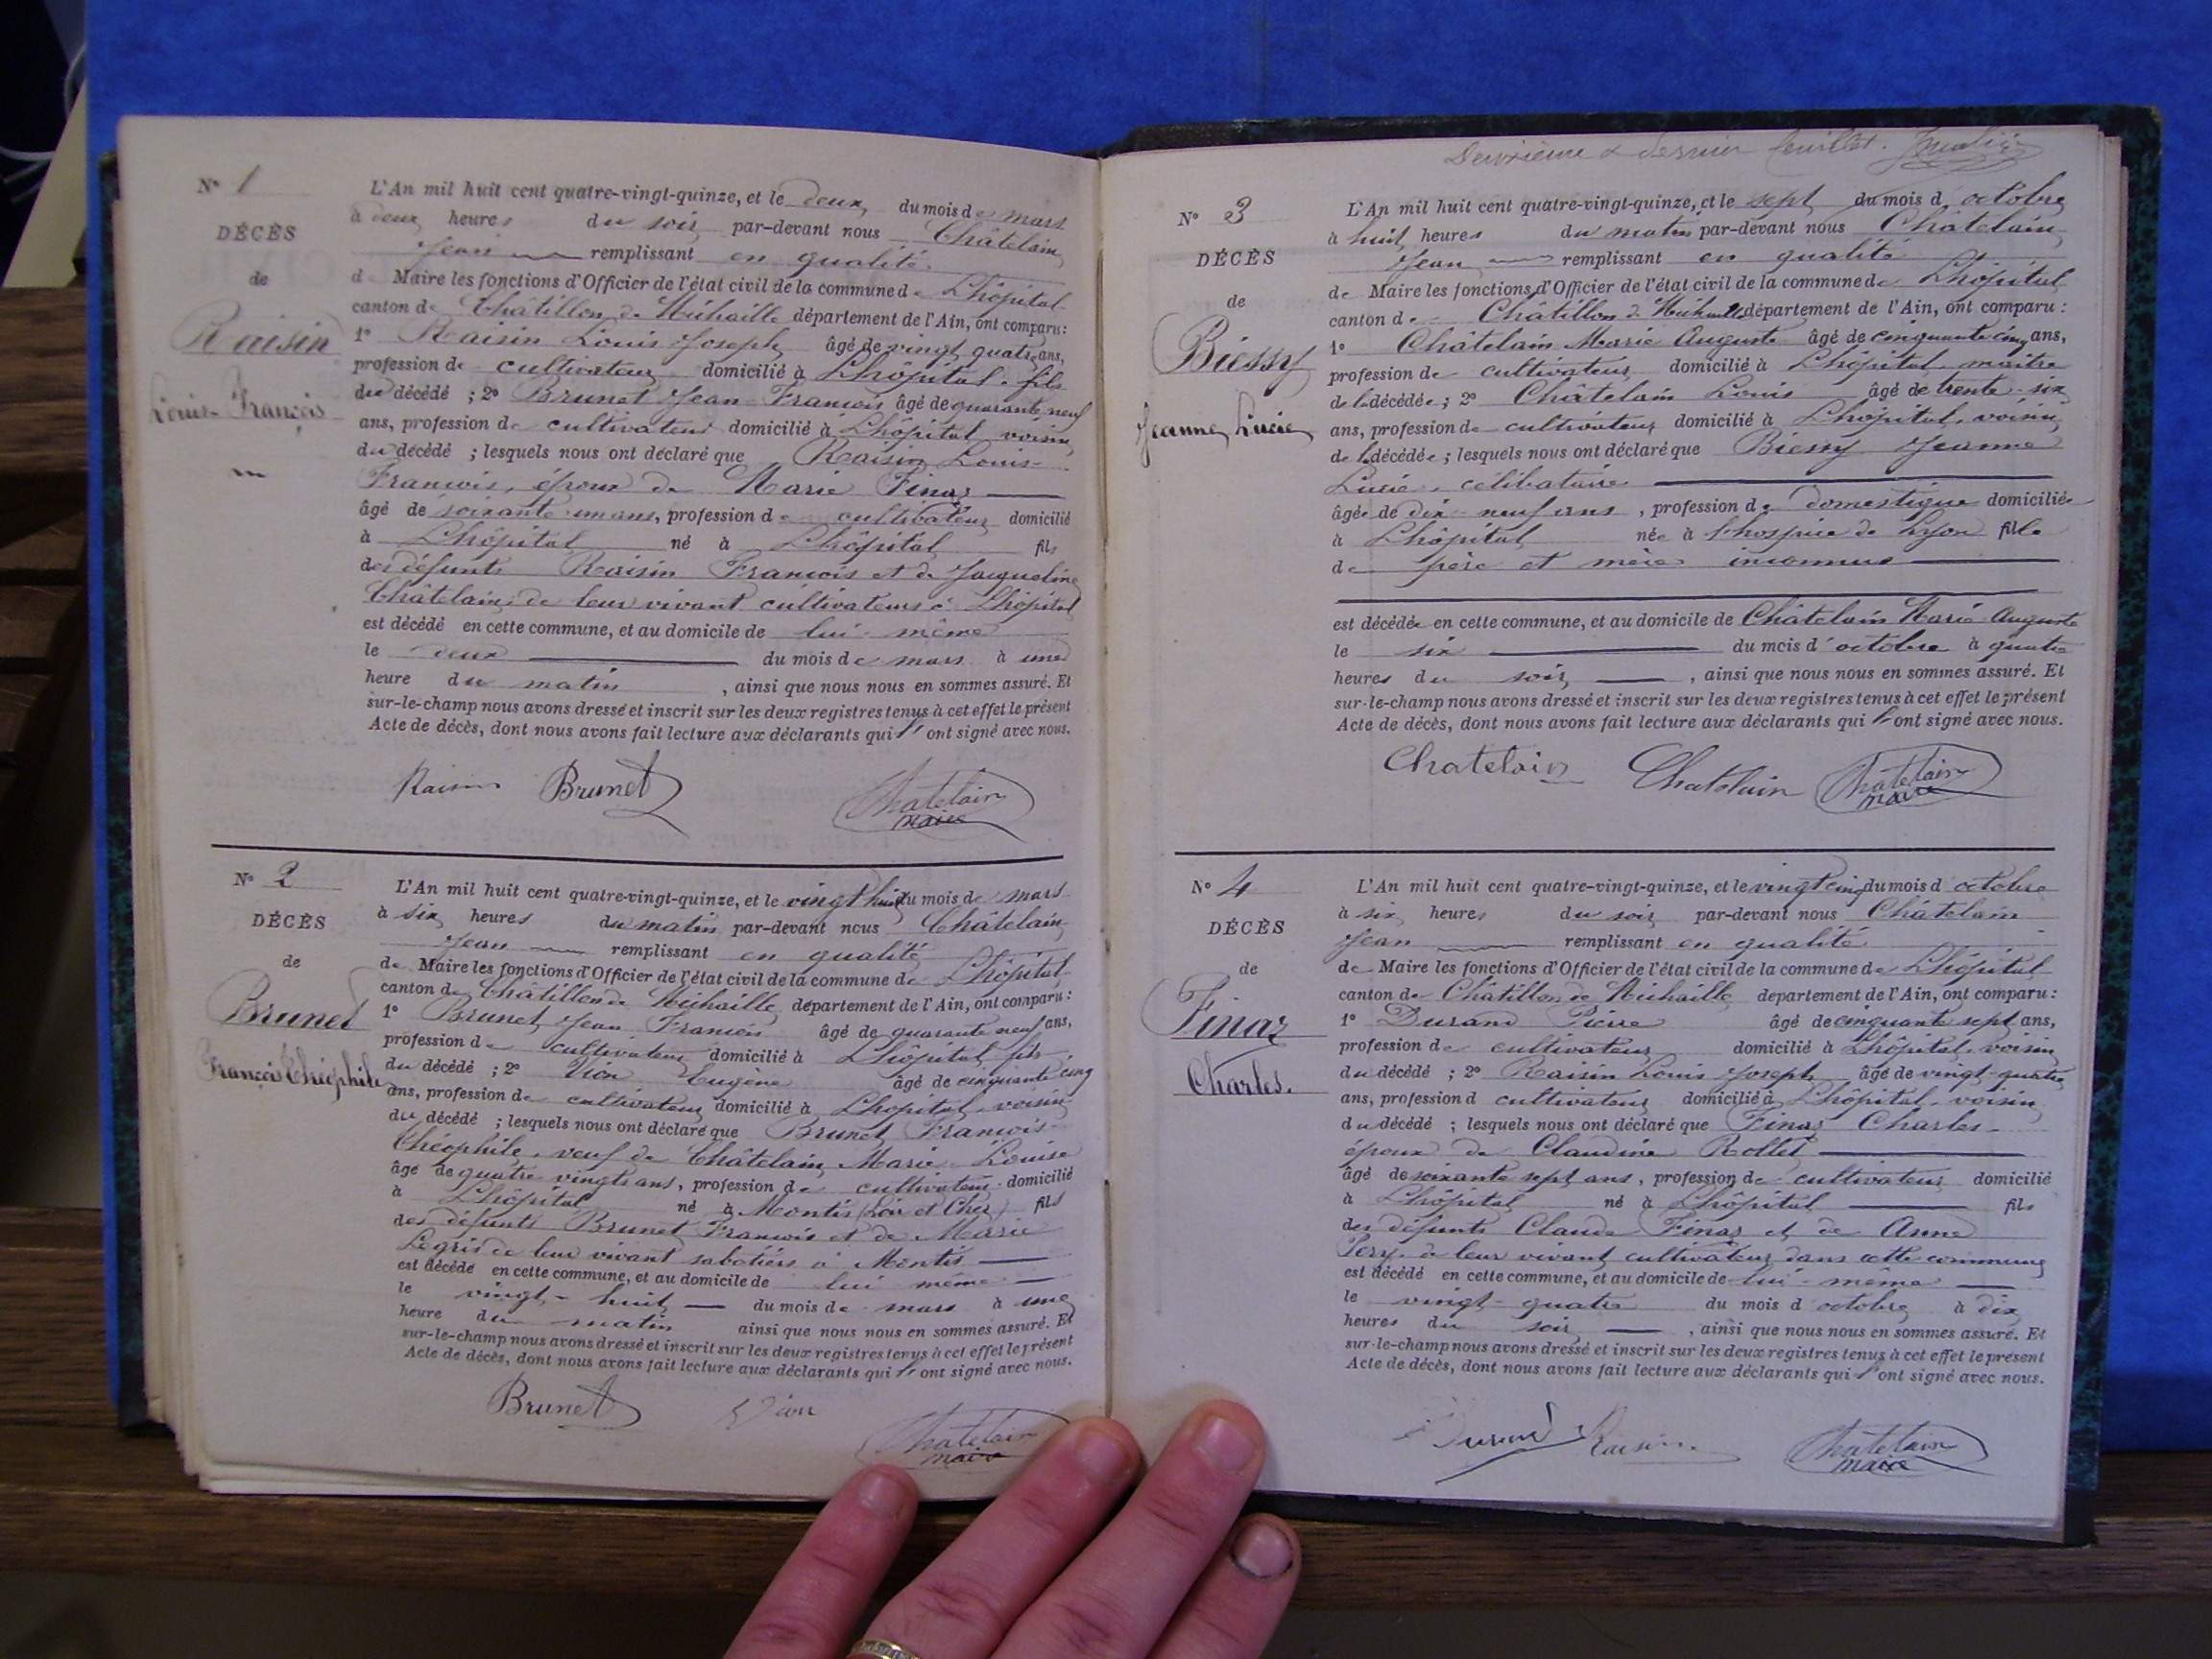 N° 1
DÉCÈS
de
Raisin
Louis François
L'An mil huit cent quatre-vingt-quinze, et le deux du mois de mars
à deux heures du soir par-devant nous Châtelain
Jean remplissant en qualité
de Maire les fonctions d'Officier de l'état civil de la commune de Lhôpital
canton de Châtillon de Michaille département de l'Ain, ont comparu :
1° Raisin Louis Joseph âgé de vingt quatre ans,
profession de cultivateur domicilié à Lhôpital, fils
du décédé ; 2° Brunet Jean François âgé de quarante neuf
ans, profession de cultivateur domicilié à Lhôpital, voisin
du décédé ; lesquels nous ont déclaré que Raisin Louis-
François, époux de Marie Finaz
âgé de soixante un ans, profession de cultivateur domicilié
à Lhôpital né à Lhôpital fils
des défunts Raisin François et de Jacqueline
Châtelain de leur vivant cultivateurs à Lhôpital
est décédé en cette commune, et au domicile de lui-même
le deux du mois de mars à une
heure du matin , ainsi que nous nous en sommes assuré. Et
sur-le-champ nous avons dressé et inscrit sur les deux registres tenus à cet effet le présent
Acte de décès, dont nous avons fait lecture aux déclarants qui l'ont signé avec nous.
Raisin Brunet Chatelain
maire
N° 2
DÉCÈS
de
Brunet
François Théophile
L'An mil huit cent quatre-vingt-quinze, et le vingt huit du mois de mars
à six heures du matin par-devant nous Châtelain
Jean remplissant en qualité
de Maire les fonctions d'Officier de l'état civil de la commune de Lhôpital
canton de Châtillon de Michaille département de l'Ain, ont comparu :
1° Brunet Jean François âgé de quarante neuf ans,
profession de cultivateur domicilié à Lhôpital, fils
du décédé ; 2° Vion Eugène âgé de cinquante cinq
ans, profession de cultivateur domicilié à Lhôpital, voisin
du décédé ; lesquels nous ont déclaré que Brunet François-
Théophile, veuf de Châtelain Marie Louise
âgé de quatre vingts ans, profession de cultivateur domicilié
à Lhôpital né à Montis (Loir et Cher) fils
des défunts Brunet François et de Marie
Legris de leur vivant sabotiers à Montis
est décédé en cette commune, et au domicile de lui-même
le vingt-huit du mois de mars à une
heure du matin ainsi que nous nous en sommes assuré. Et
sur-le-champ nous avons dressé et inscrit sur les deux registres tenus à cet effet le présent
Acte de décès, dont nous avons fait lecture aux déclarants qui l'ont signé avec nous.
Brunet Vion Chatelain
maire
Deuxième & dernier feuillet.
N° 3
DÉCÈS
de
Biessy
Jeanne Lucie
L'An mil huit cent quatre-vingt-quinze, et le sept du mois d'octobre
à huit heures du matin par-devant nous Châtelain
Jean remplissant en qualité
de Maire les fonctions d'Officier de l'état civil de la commune de Lhôpital
canton de Châtillon de Michaille département de l'Ain, ont comparu :
1° Châtelain Marie Auguste âgé de cinquante cinq ans,
profession de cultivateur domicilié à Lhôpital, maître
de la décédée ; 2° Châtelain Louis âgé de trente-six
ans, profession de cultivateur domicilié à Lhôpital, voisin
de la décédée ; lesquels nous ont déclaré que Biessy Jeanne
Lucie, célibataire
âgée de dix-neuf ans , profession de domestique domiciliée
à Lhôpital née à l'hospice de Lyon fille
de père et mère inconnus
est décédée en cette commune, et au domicile de Châtelain Marie Auguste
le six du mois d'octobre à quatre
heures du soir , ainsi que nous nous en sommes assuré. Et
sur-le-champ nous avons dressé et inscrit sur les deux registres tenus à cet effet le présent
Acte de décès, dont nous avons fait lecture aux déclarants qui l'ont signé avec nous.
Chatelain Chatelain Chatelain
maire
N° 4
DÉCÈS
de
Finaz
Charles.
L'An mil huit cent quatre-vingt-quinze, et le vingt cinq du mois d octobre
à six heures du soir par-devant nous Châtelain
Jean remplissant en qualité
de Maire les fonctions d'Officier de l'état civil de la commune de Lhôpital
canton de Châtillon de Michaille département de l'Ain, ont comparu :
1° Durand Pierre âgé de cinquante sept ans,
profession de cultivateur domicilié à Lhôpital, voisin
du décédé ; 2° Raisin Louis Joseph âgé de vingt-quatre
ans, profession d cultivateur domicilié à Lhôpital, voisin
du décédé ; lesquels nous ont déclaré que Finaz Charles-
époux de Claudine Rollet
âgé de soixante sept ans, profession de cultivateur domicilié
à Lhôpital né à Lhôpital fils
des défunts Claude Finaz et de Anne
de leur vivant cultivateurs dans cette commune
est décédé en cette commune, et au domicile de lui-même
le vingt-quatre du mois d octobre à dix
heures du soir , ainsi que nous nous en sommes assuré. Et
sur-le-champ nous avons dressé et inscrit sur les deux registres tenus à cet effet le présent
Acte de décès, dont nous avons fait lecture aux déclarants qui l'ont signé avec nous.
Durand Raisin Chatelain
maire